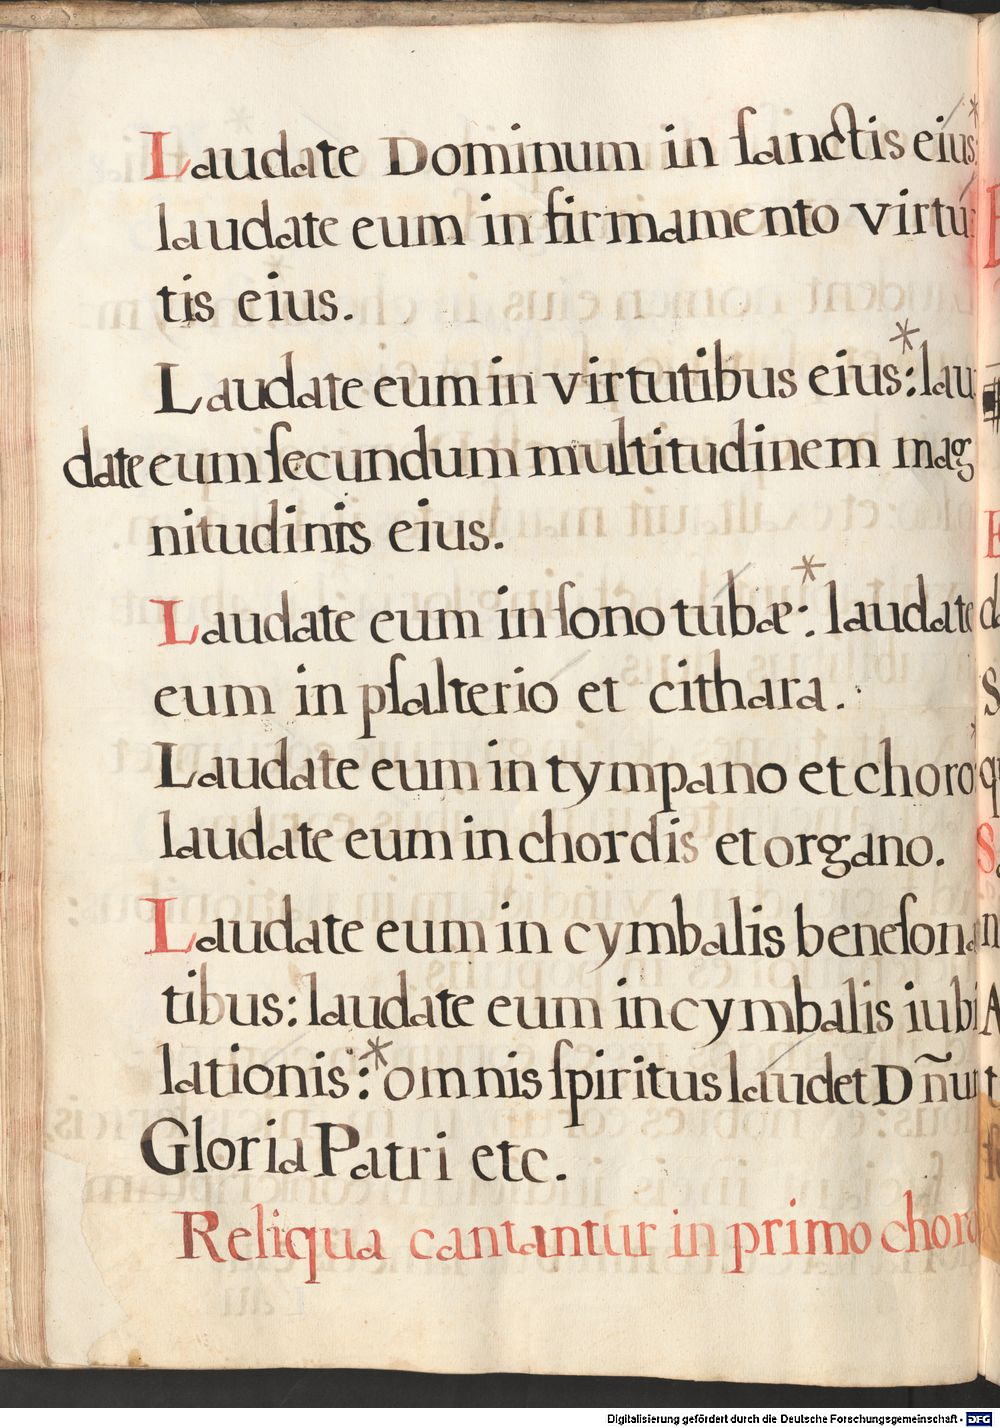 Laudate Dominum in ſanctis eius *
laudate eum in firmamento virtu:
tis eius.
Laudate eum in virtutibus eius:* lau
date eum ſecundum multitudinem mag
nitudinis eius.
Laudate eum in ſono tubæ:* laudate
eum in pſalterio et cithara.
Laudate eum in tympano et choro
laudate eum in chordis et organo.
Laudate eum in cymbalis beneſona
tibus: laudate eum in cymbalis iubi
lationis:* omnis ſpiritus laudet Dñum
Gloria Patri etc.
Reliqua cantantur in primo choro
Digitalisierung gefördert durch die Deutsche Forschungsgemeinschaft - DFG